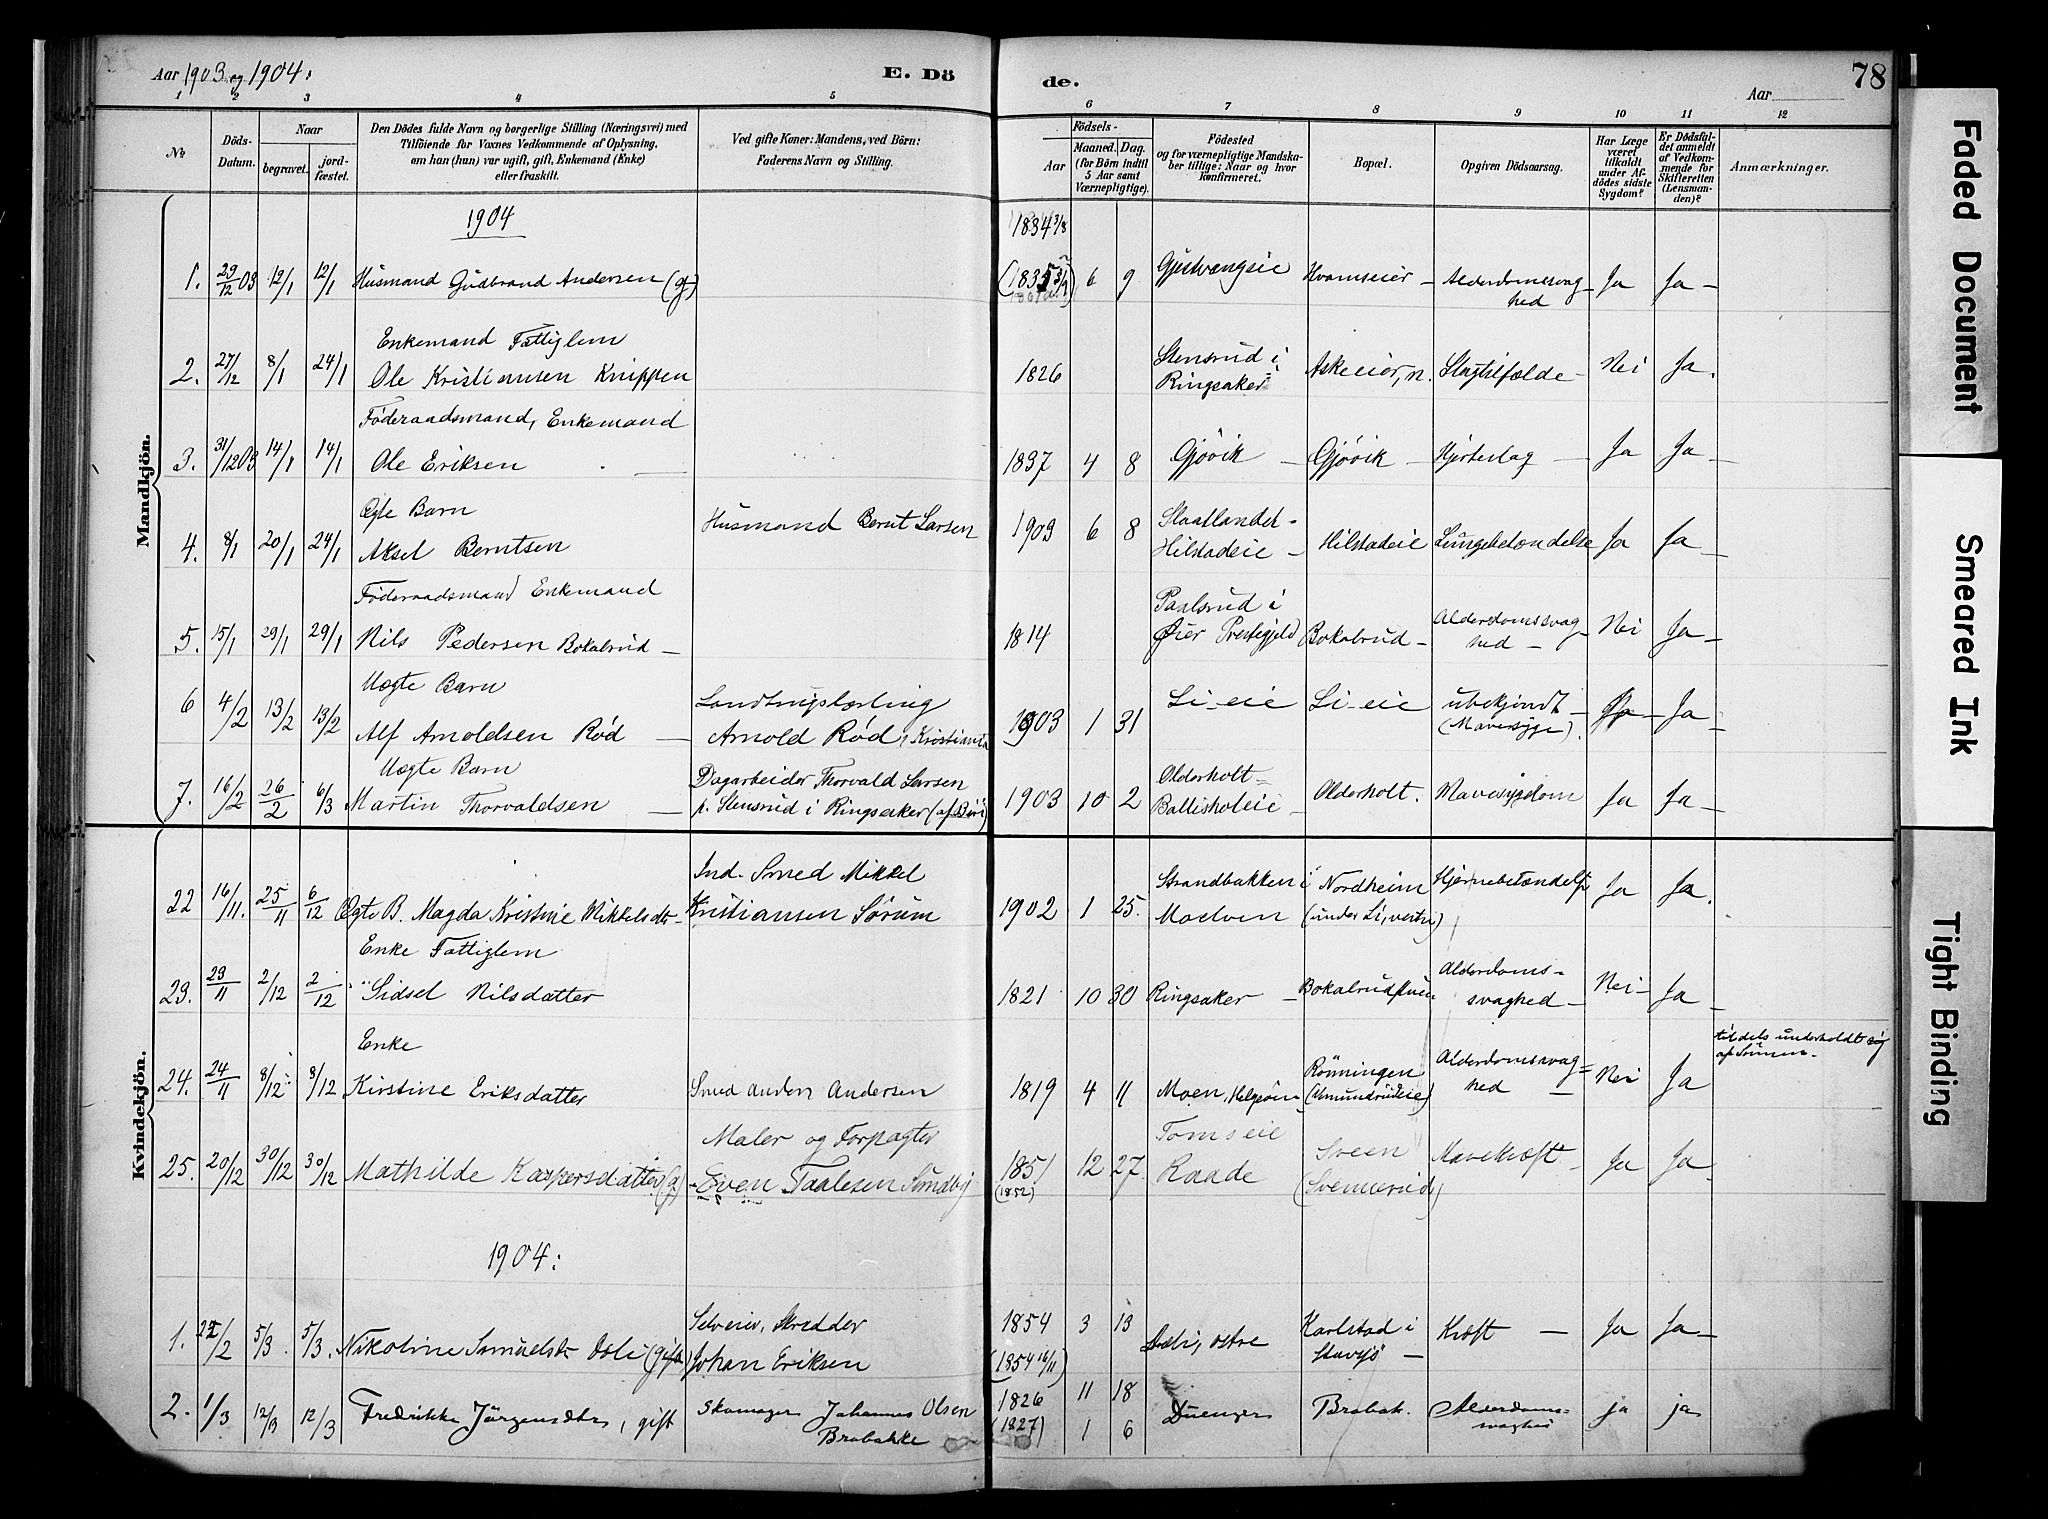 Aar 1903 og 1904:
E. Dö
de.
Aar
78
1 2 3 4 5 6 7 8 9 10 11 12
No
Döds-Datum.
Naar
begravet.
jord-fæstet.
Den Dödes fulde Navn og borgerlige Stilling (Næringsvei) med
Tilföiende for Voxnes Vedkommende af Oplysning,
om han (hun) var ugift, gift, Enkemand (Enke)
eller fraskilt.
Ved gifte Koner: Mandens, ved Börn:
Faderens Navn og Stilling.
Födsels-
Aar
Maaned. (for Börn indtil 5 Aar samt Værnepligtige).
Dag.
Födested
og for værnepligtige Mandska-
ber tillige: Naar og hvor
konfirmeret.
Bopæl.
Opgiven Dödsaarsag.
Har Læge været tilkaldt under Af-dödes sidste Sygdom?
Er Dödsfal-det anmeldt af Vedkom-mende for Skifteretten (Lensman-den)?
Anmærkninger.
Mandkjön.
1904
1834 3/8
1. 29/12 03 12/1 12/1 Husmand Gudbrand Andersen (g) 6 9 Gjestvangseie Hvamseier Alderdomssvag-
hed Ja Ja
Enkemand Fattiglem
2. 27/12 8/1 24/1 Ole Kristiansen Knippen 1826 Stensrud i
Ringsaker Askeeier, n. Slagtilfælde Nei Ja.
Föderaadsmand, Enkemand
3. 31/12 03 14/1 14/1 Ole Eriksen 1837 4 8 Gjövik Gjövik Hjerteslag Ja Ja
Ægte Barn
4. 8/1 20/1 24/1 Aksel Berntsen Husmand Bernt Larsen 1903 6 8 Slaatlandet-
Hilstadeie Hilstadeie Lungebetændelse Ja Ja
Föderaadsmand Enkemand
5. 15/1 29/1 29/1 Nils Pedersen Bokalrud 1814 Paalsrud i
Öier Prestegjeld Bokalrud Alderdomssvag-
hed Nei Ja
Uægte Barn
6 4/2 13/2 13/2 Alf Arnoldsen Rød
Arnold Rød, Kristiania 1903 1 31 Li-eie Li-eie ubekjendt
(Mavesyge). Ja
Uægte Barn
7. 16/2 26/2 6/3 Martin Thorvaldsen Dagarbeider Thorvald Larsen
p. Stensrud i Ringsaker (af Biri) 1903 10 2 Olderholt-
Ballishøleie Olderholt. Mavesygdom Ja Ja
Kvindekjön.
22 16/11. 25/11 6/12 Ægte B. Magda Kristine Mikkelsdtr Ind. Smed Mikkel
Kristiansen Sørum 1902 1 25. Strandbakken i
Moelven Nordheim
(under Li, vestre) Hjernebetændelse Ja Ja.
Enke Fattiglem
23. 23/11 2/12 2/12 Sidsel Nilsdatter 1821 10 30 Ringsaker Alderdoms-
svaghed Nei Ja
Enke
24. 24/11 8/12 8/12 Kirstine Eriksdatter Smed Anders Andersen 1819 4 11 Moen, Helgøen Rönningen
(Amundrudeie) Alderdomssvag-
hed Nei Ja tildels underholdt sig
af Sönnen.
25. 20/12 30/12 30/12 Mathilde Kaspersdatter (g) Maler og Forpagter
Even Taalesen Sundby 1851
(1852) 12 27 Tomseie
Raade Sveen
(Svennerud) Mavekræft Ja Ja
1904:
1. 22/2 5/3. 5/3. Nikoline Samuelsdtr Dæli (gift) Selveier, Skredder
Johan Eriksen 1854
(1854 16/11) 3 13 Dæli, østre Karlstad i
Stavsjö Kræft Ja Ja
2. 1/3 12/3 12/3 Fredrikke Jörgensdtr, gift Skomager Johannes Olsen
Brobakke 1826 11 18
(1827) 1 6 Duenger Brobak. Alderdoms-
svaghed ja ja
Faded Document
Smeared Ink
Tight Binding